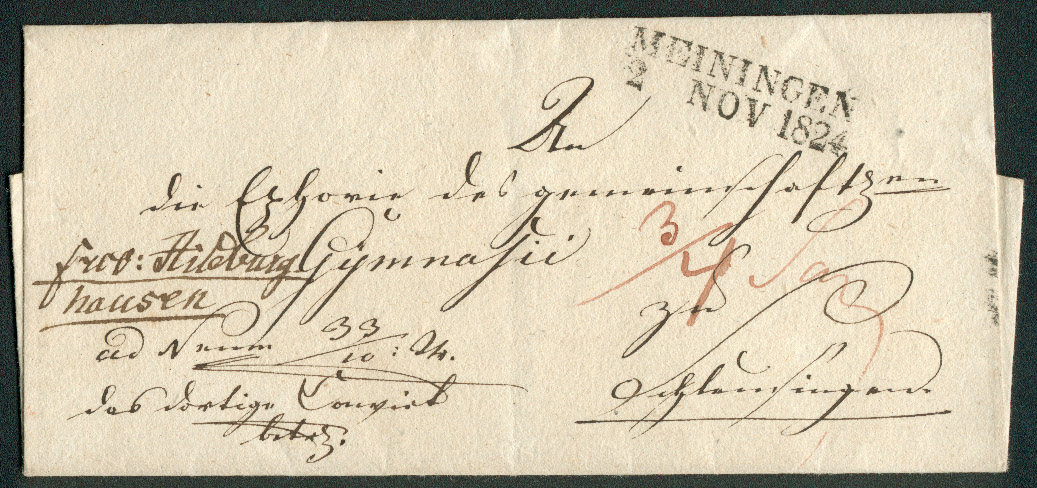 MEININGEN
2 NOV 1824
An
die Ephorie des gemeinschaftl en
Gymnasii
zu
Schleusingen.
frco: Hildburg
hausen
3/4
ad Num 33/10: Th.
das dortige Convict
betr.